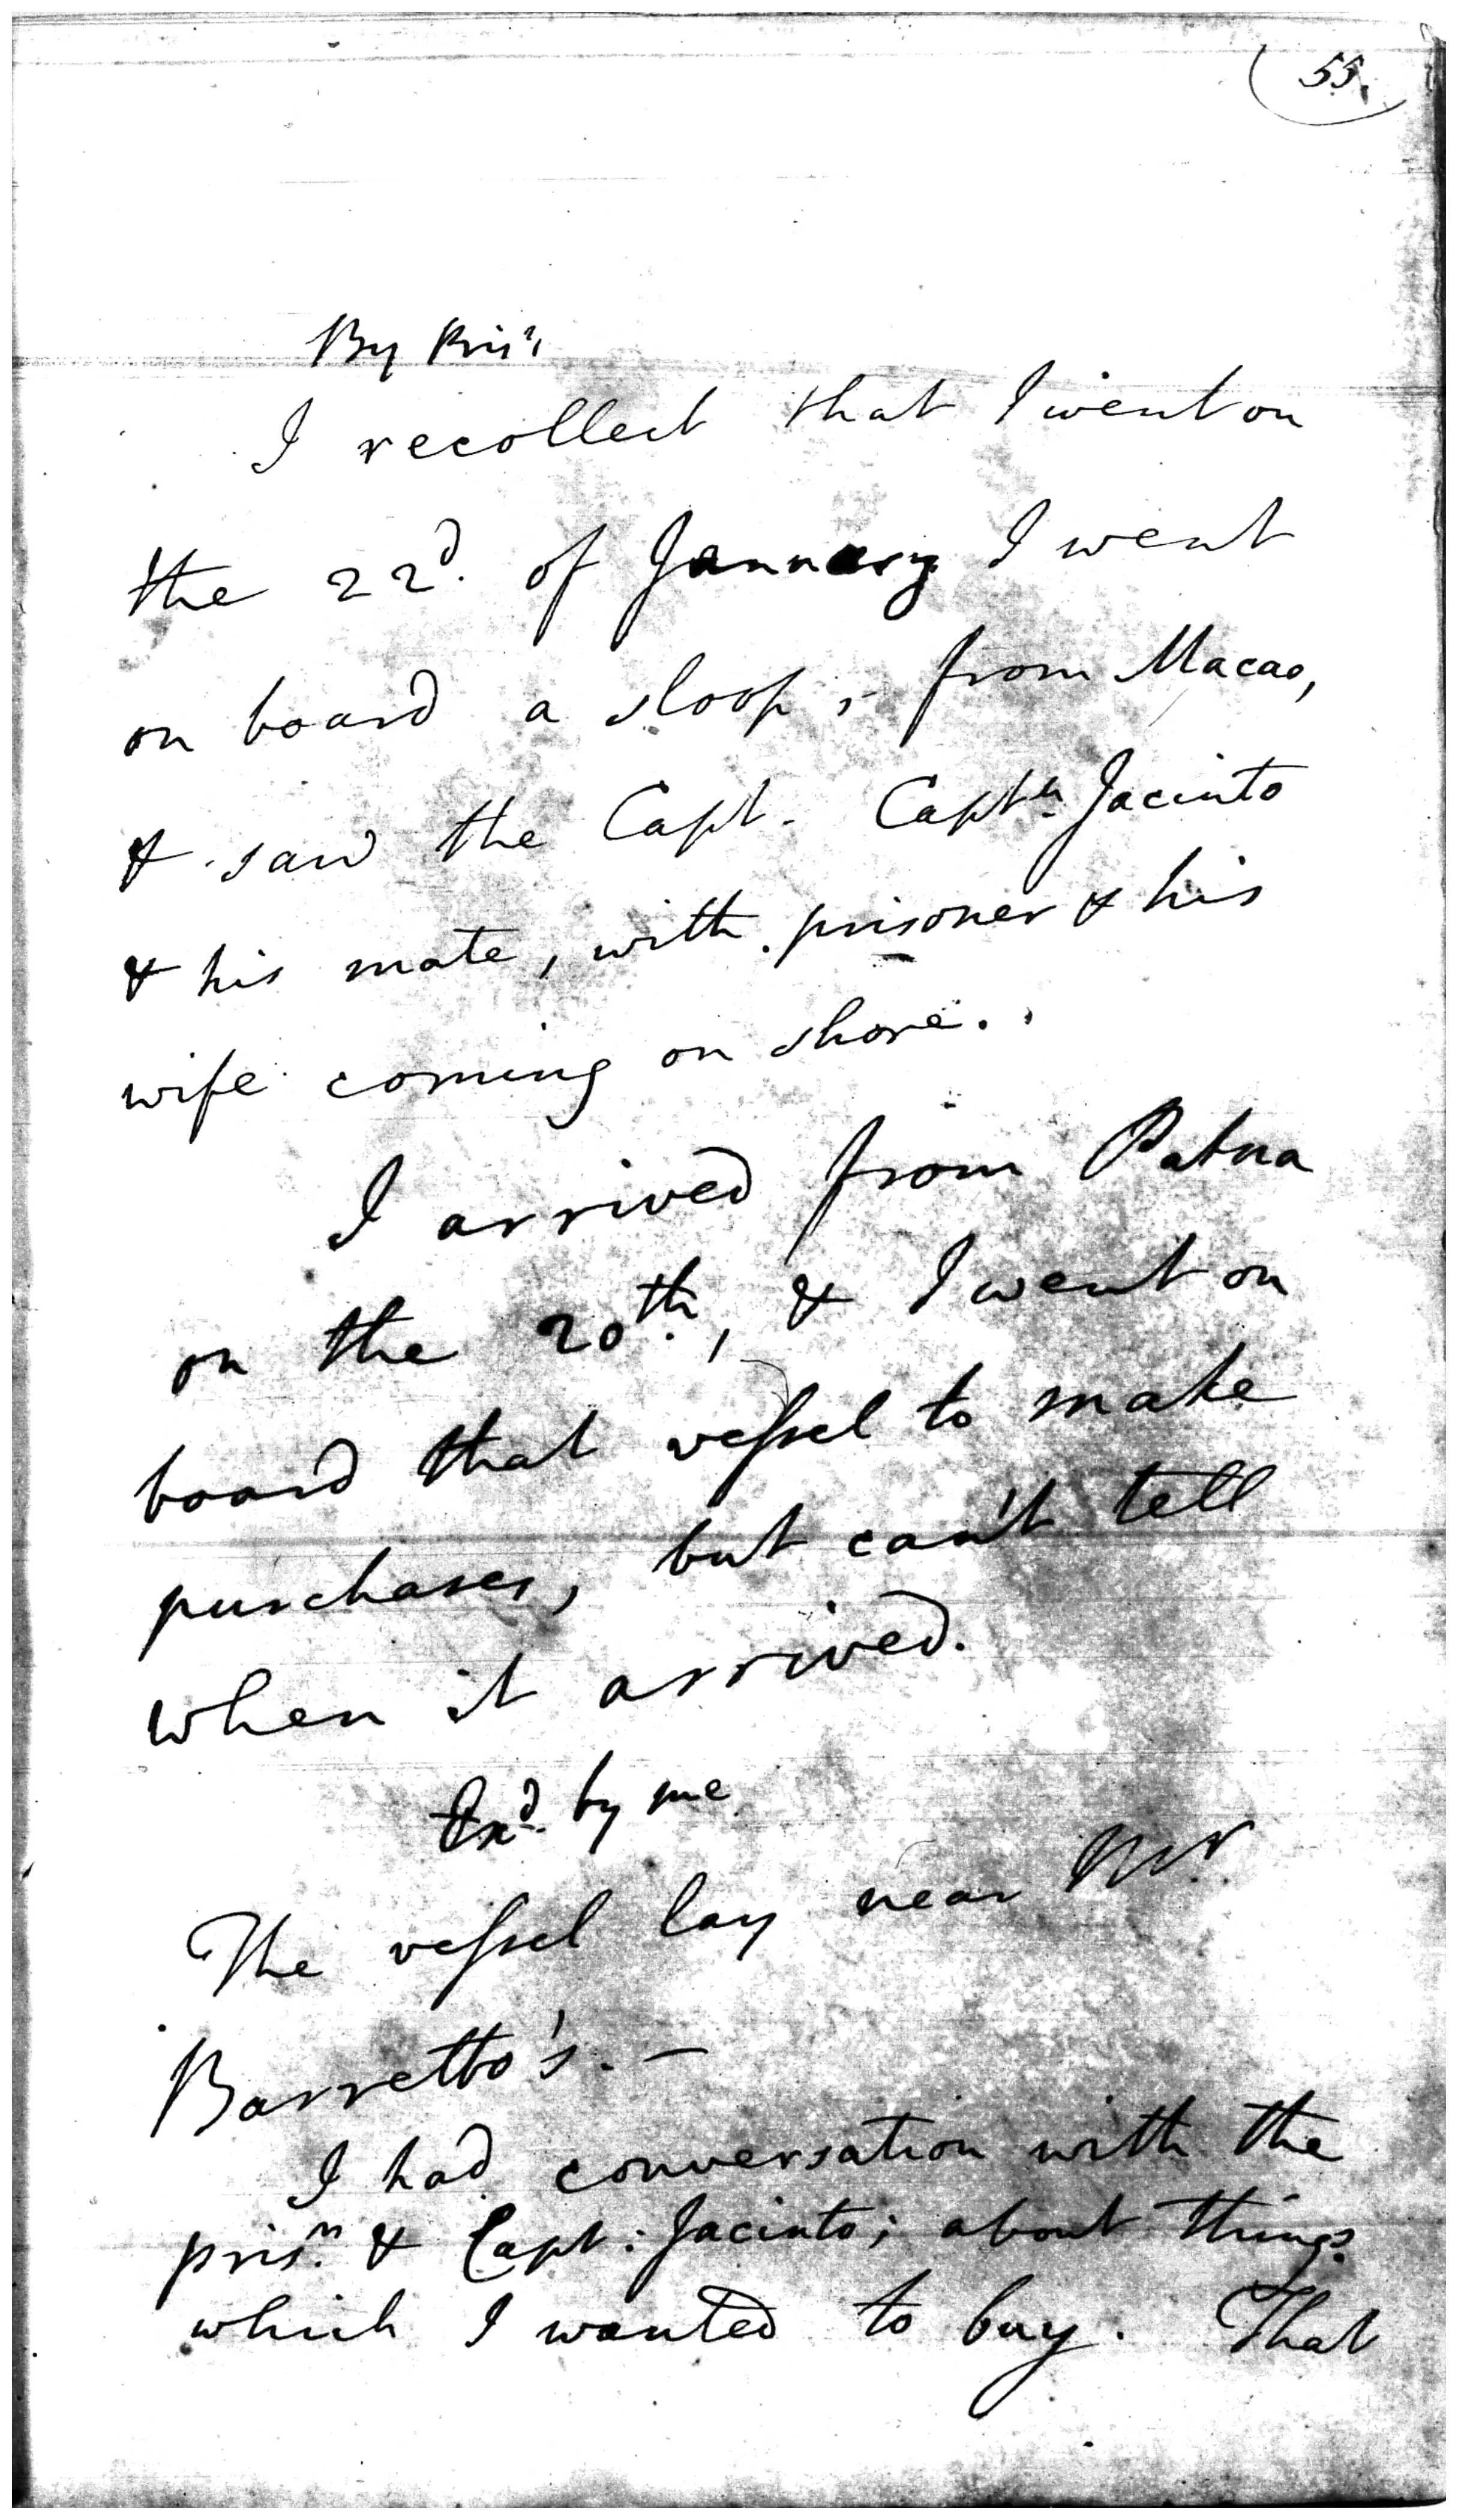 55.
By Pris.r
I recollect that I went on
the 22d. of January I went
on board a sloop, - from Macao,
& saw the Capt. Captn. Jacinto
& his mate, with prisoner & his
wife coming on shore.
I arrived from Patna
on the 20th., & I went on
board that vessel to make
purchases, but can't tell
when it arrived.
Exd. by me
The vessel lay near Mr.
Barretto's. -
I had conversation with the
prisr. & Capt. Jacinto; about things
which I wanted to buy. That